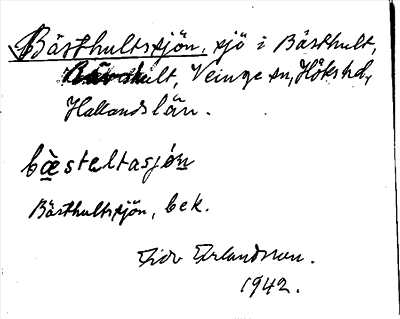 Bästhultssjön, sjö i Bästhult,
Veinge sn, Höks hd,
Hallands län.
bæsteltasjön
Bästhultssjön, bek.
Erlandsson.
1942.